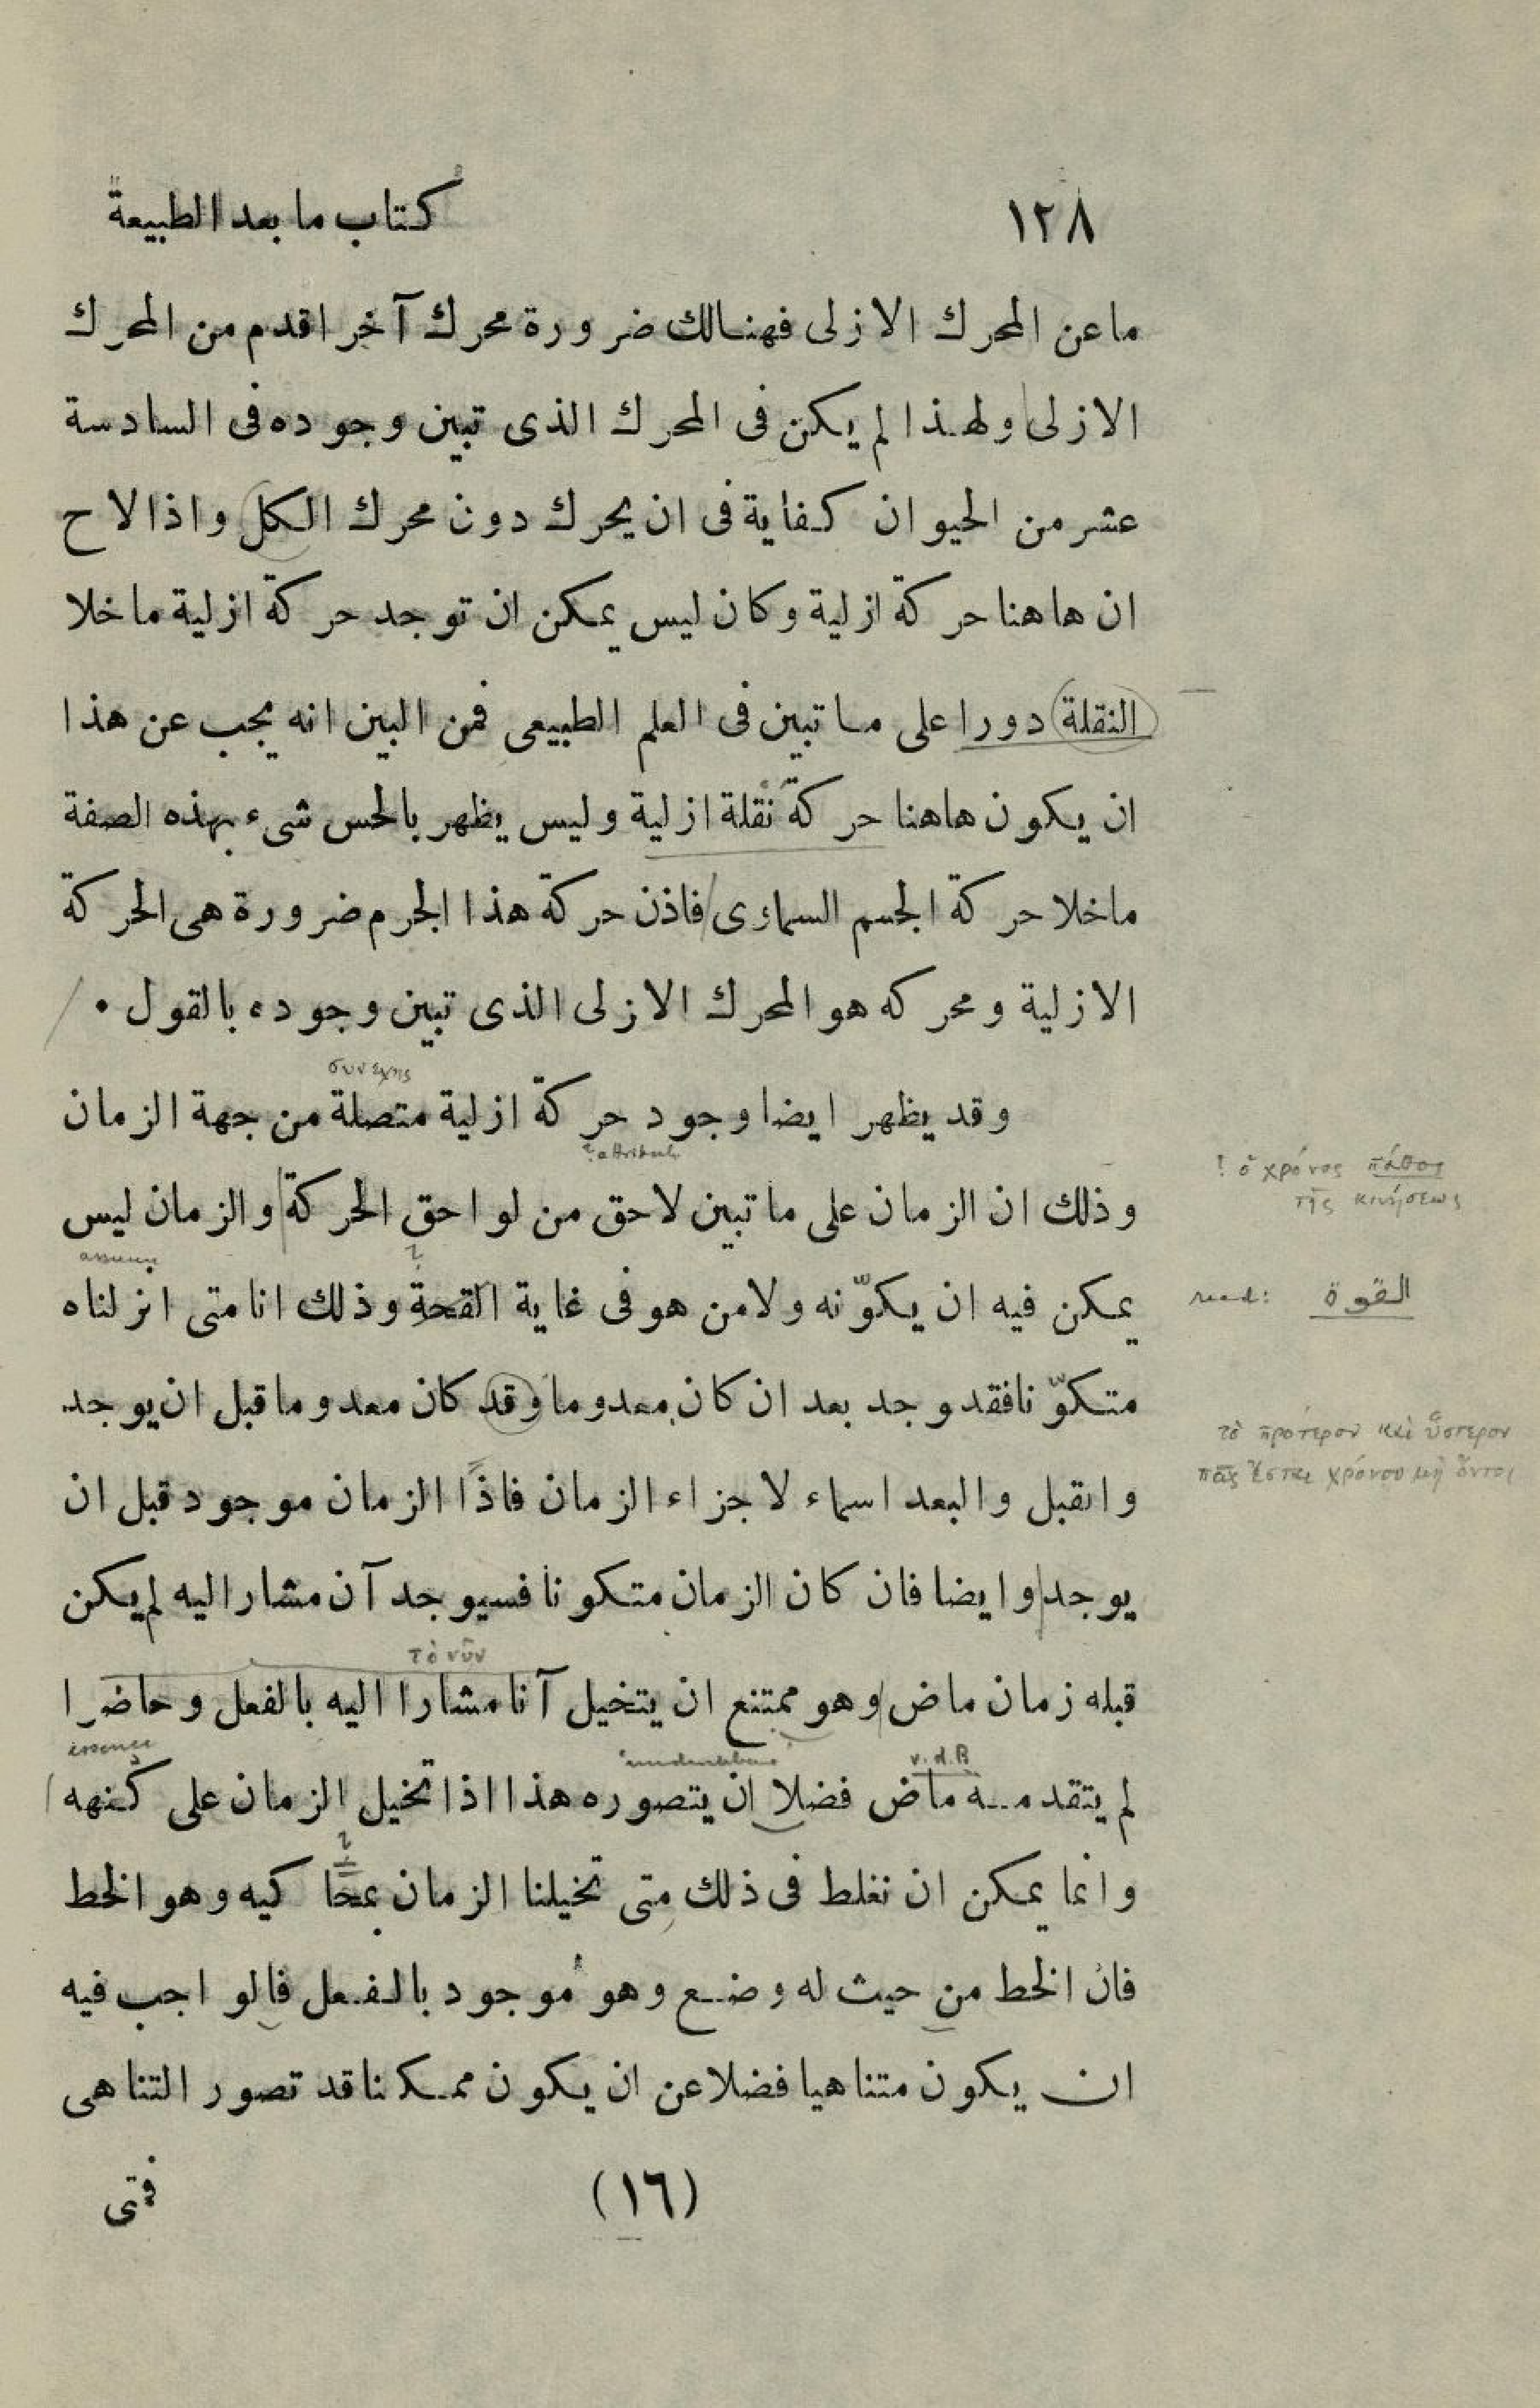 ١٢٨ كتاب ما بعد الطبيعة
ما عن المحرك الازلى فهنالك ضرورة محرك آخر اقدم من المحرك
الازلى ولهذا لم يكن فى المحرك الذى تبين وجوده فى السادسة
عشر من الحيوان كفاية فى ان يحرك دون محرك الكل واذا لاح
ان هاهنا حركة ازلية وكان ليس يمكن ان توجد حركة ازلية ما خلا
النقلة دورا على ما تبين فى العلم الطبيعى فمن البين انه يجب عن هذا
ان يكون هاهنا حركة نقلة ازلية وليس يظهر بالحس شىء بهذه الصفة
ما خلا حركة الجسم السماوى فاذن حركة هذا الجرم ضرورة هى الحركة
الازلية ومحركه هو المحرك الازلى الذى تبين وجوده بالقول ٠
συνεχης
وقد يظهر ايضا وجود حركة ازلية متصلة من جهة الزمان
? attribute
! ὁ χρόνος πάθος
τῆς κινήσεως
وذلك ان الزمان على ما تبين لاحق من لواحق الحركة والزمان ليس
assume
يمكن فيه ان يكوّنه ولا من هو فى غاية القحة وذلك انا متى انزلناه
read: القوة
متكوّنا فقد وجد بعد ان كان معدوما وقد كان معدوما قبل ان يوجد
τὸ πρότερον καὶ ὕστερον
πῶς ἔσται χρόνου μὴ ὄντος
والقبل والبعد اسماء لاجزاء الزمان فاذًا الزمان موجود قبل ان
يوجد وايضا فان كان الزمان متكونا فسيوجد آن مشار اليه لم يكن
τὸ νῦν
قبله زمان ماض وهو ممتنع ان يتخيل آنا مشارا اليه بالفعل وحاضرا
essence
v.d.B
لم يتقدمه ماض فضلا ان يتصوره هذا اذا تخيل الزمان على كنهه
وانما يمكن ان نغلط فى ذلك متى تخيلنا الزمان بمحاكيه وهو الخط
فان الخط من حيث له وضع وهو موجود بالفعل فالواجب فيه
ان يكون متناهيا فضلا عن ان يكون ممكنا قد تصور التناهى
(١٦) فمتى